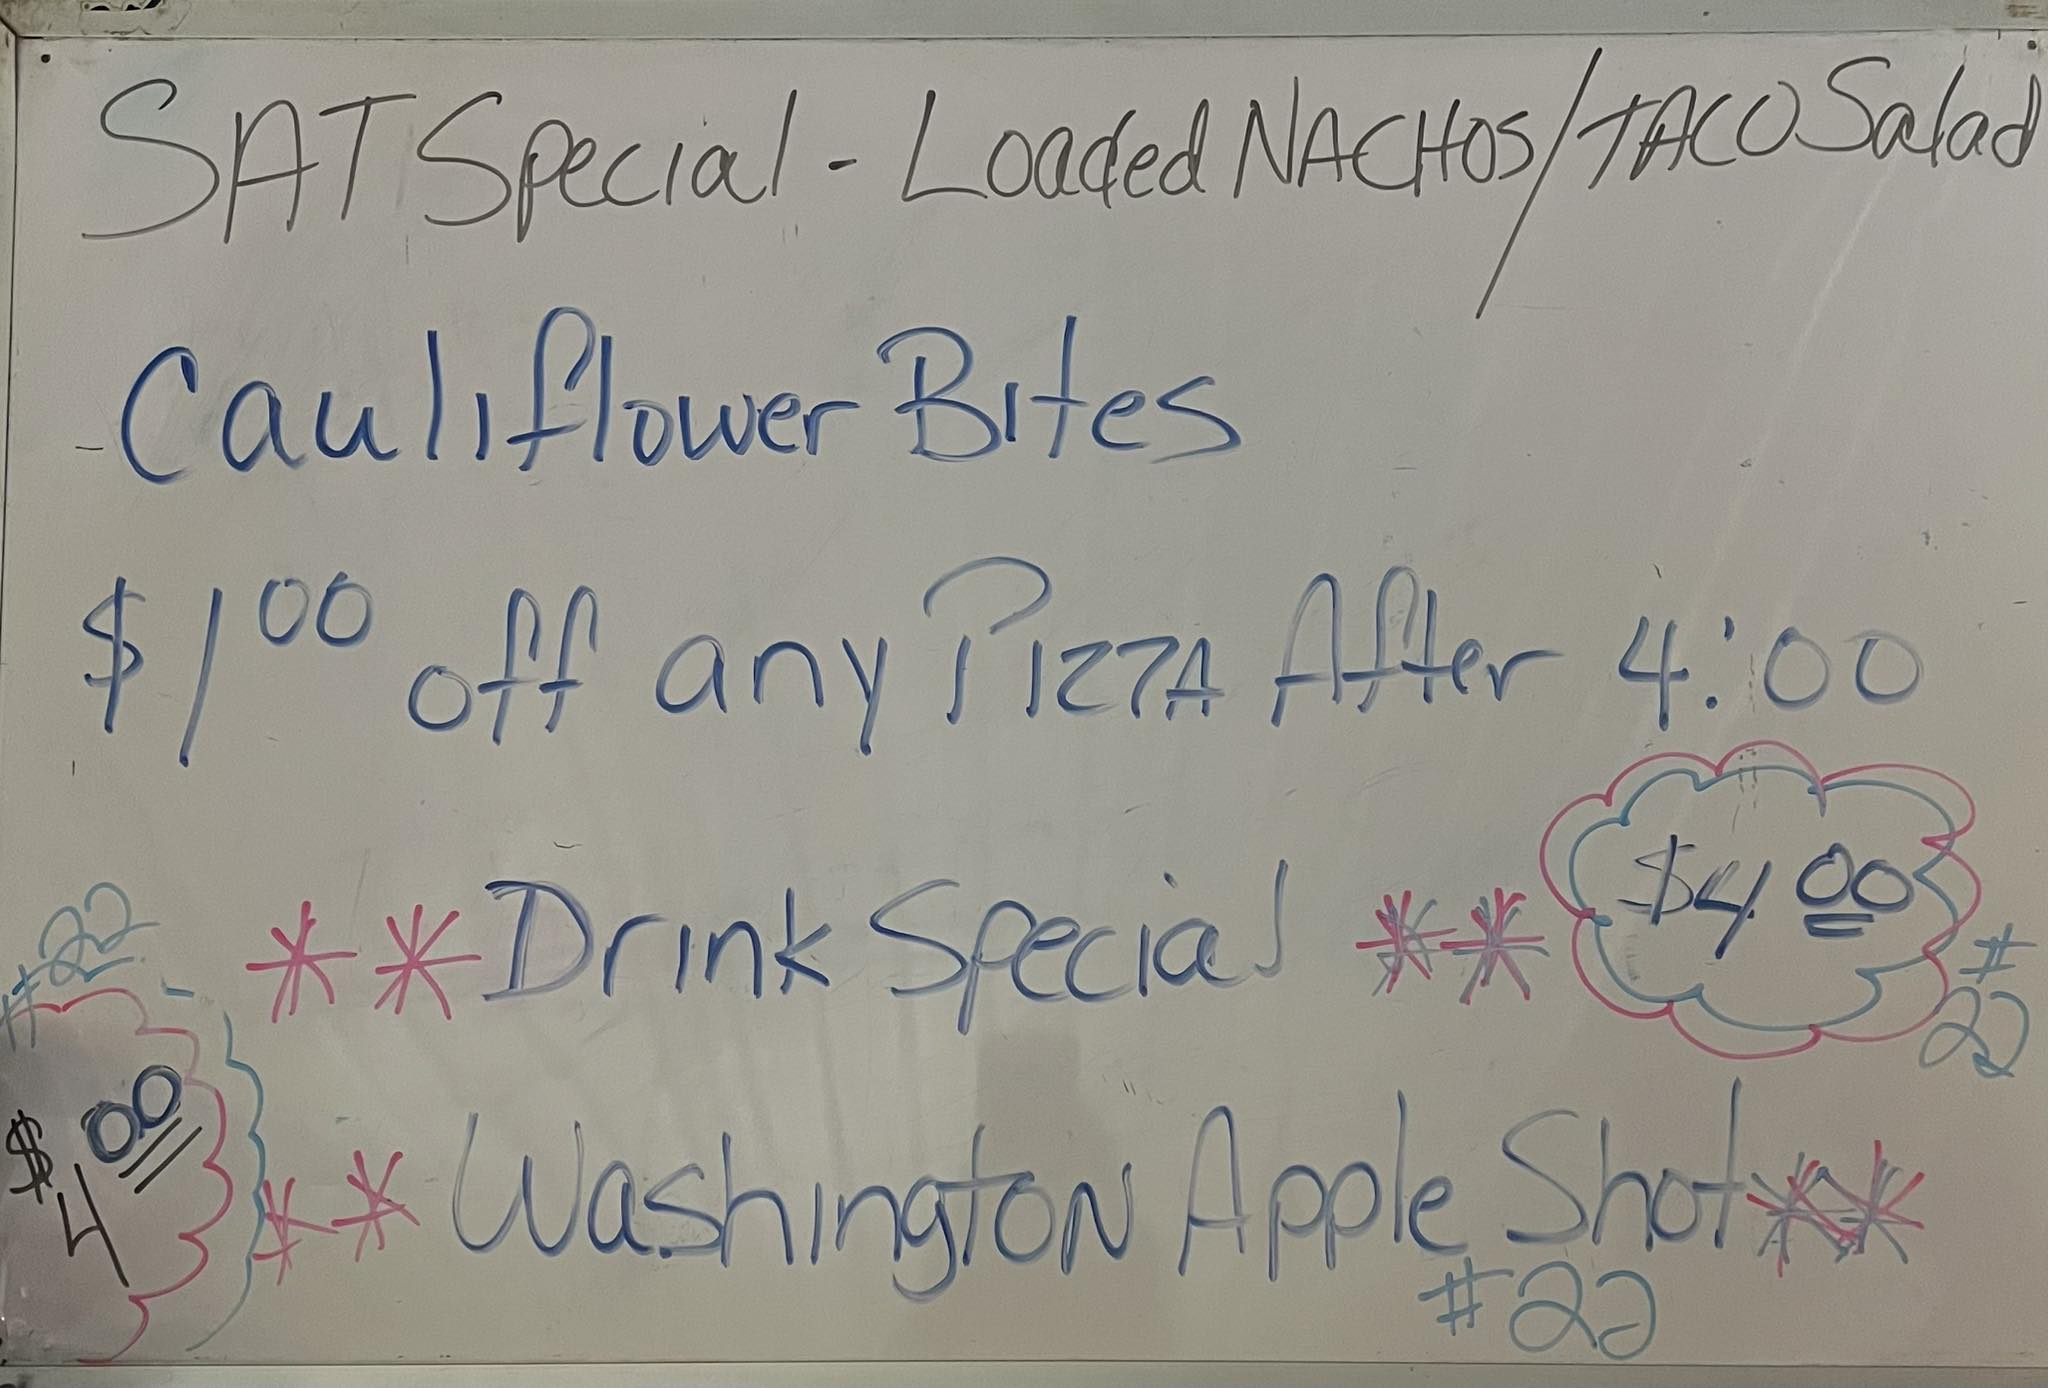 SAT Special - Loaded NACHOS/TACO Salad
Cauliflower Bites
$1.00 off any PIZZA After 4:00
** Drink Special **
$4.00
#22
#22
$4.00
** Washington Apple Shot **
#22